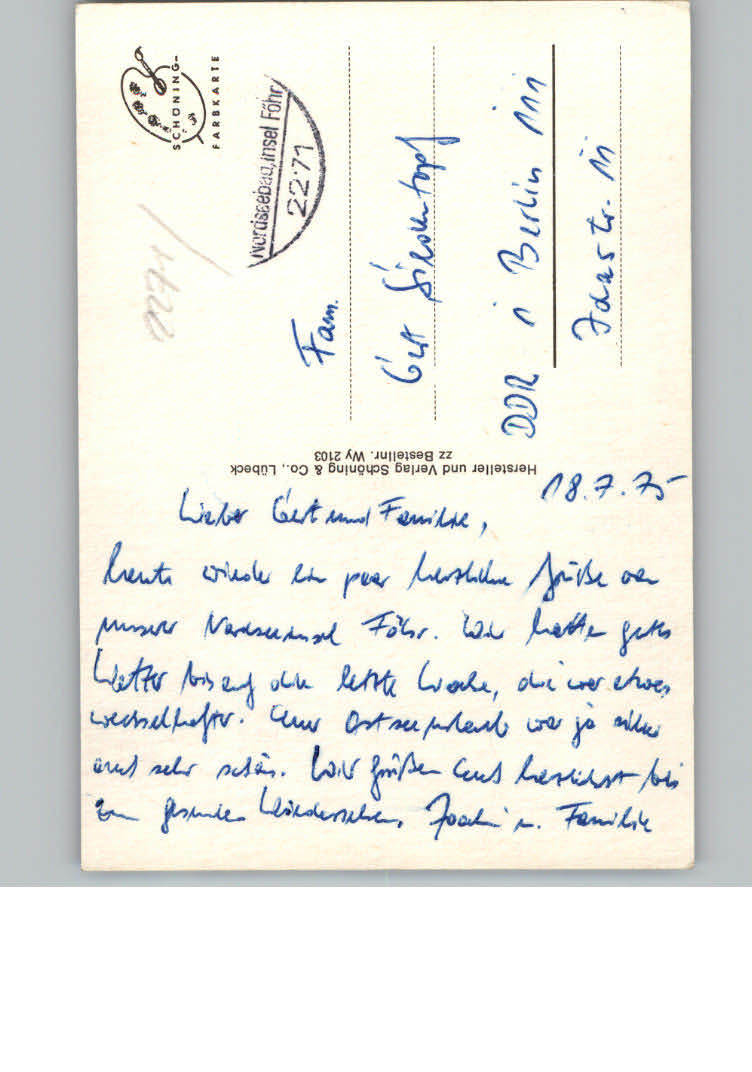 SCHÖNING-
FARBKARTE
Nordseebad, Insel Föhr
22·71
2271/
Fam.
Gert
DDR 1 Berlin 111
str. 11
Hersteller und Verlag Schöning & Co., Lübeck
zz Bestellnr. Wy 2103
18.7.75
Lieber Gert und Familie,
heute wieder ein paar herzliche Grüße von
unserer Nordseeinsel Föhr. Wir hatten gutes
Wetter bis auf die letzte Woche, die war etwas
wechselhafter. Euer Ostseeurlaub war ja sicher
auch sehr schön. Wir grüßen Euch herzlichst bis
zum gesunden Wiedersehen, Joachim u. Familie